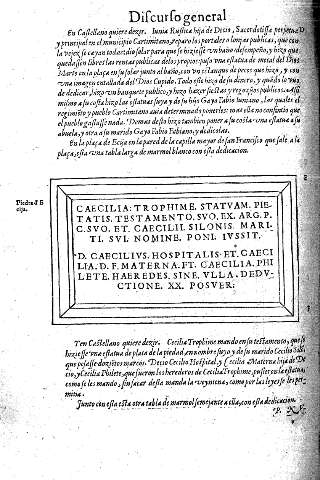 Discurso general
En Castellano quiere dezir. Iunia Rustica hija de Decio, Sacerdotissa perpetua
y principal en el municipio Cartimitano, reparo los portales o lonjas publicas, que con
la vejez se cayan todas: dio solar para que se hiziesse un baño
quedassen libres las rentas publicas: puso una estatua de metal del Dios
Marte en la plaça en su solar junto al baño, con un estanque de peces que hizo, y con
una imagen entallada del Dios Cupido. Todo esto hizo de su dinero, y quãdo lo vuo
de dedicar, hizo un banquete publico, y hizo hazer fiestas y regozijos publicos. Assi
mismo a su costa hizo las estatuas suya y de su hijo Gayo Fabio Iuniano, las quales el
regimiẽto y pueblo Cartimitano auia determinado ponerles: con esto no consintio que
el pueblo gastasse nada. Demas desto hizo tambien poner a su costa una estatua a su
abuela, y otra a su marido Gayo Fabio Fabiano, y dedicolas.
En la plaça de Ecija en la pared de la capilla mayor de san Francisco que sale a la
plaça, esta una tabla larga de marmol blanco con esta dedicacion.
Piedra d' E
cija.
CAECILIA: TROPHIME. STATVAM. PIE-
TATIS. TESTAMENTO. SVO. EX. ARG. P.
C. SVO. ET. CAECILII. SILONIS. MARI-
TI. SVI. NOMINE. PONI. IVSSIT.
D. CAECILIVS. HOSPITALIS. ET. CAECI
LIA. D. F. MATERNA. ET. CAECILIA. PHI
LETE. HAEREDES. SINE. VLLA. DEDV-
CTIONE. XX. POSVER:
Y en Castellano quiere dezir. Cecilia Trophime mando en su testamento, que se
hiziesse una estatua de plata de la piedad, en nombre suyo y de su marido Cecilio Silõ
que pesasse dozientos marcos. Decio Cecilio Hospital, y Cecilia Materna hija de De
cio, y Cecilia Philete, que fueron los herederos de Cecilia Trophime, pusieron la estatua,
como se les mando, sin sacar desta manda la veyntena, como por las leyes se les per
mitia.
Junto con esta está otra tabla de marmol semejante a ella, con esta dedicacion.